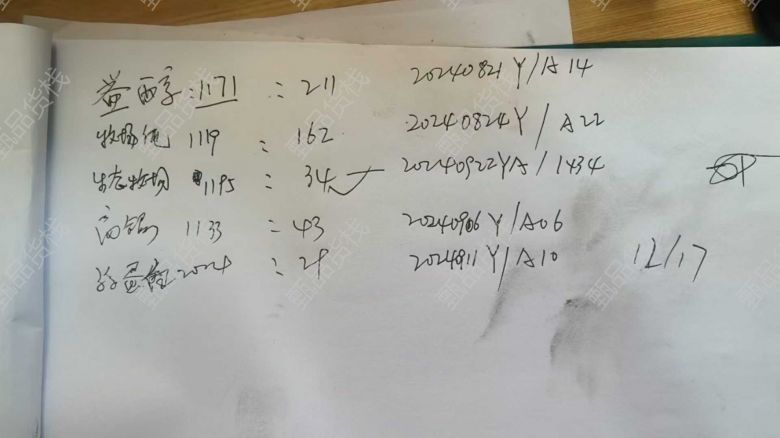 益醇:1171 : 211 20240821Y/A14
牧场纯 1119 : 162 20240824Y/A22
生态牧场 1195 : 34 20240922YA/1434
高钙 1133 : 43 20240906Y/A06
2024 : 29 2024911Y/A10 12/17
甄品货栈